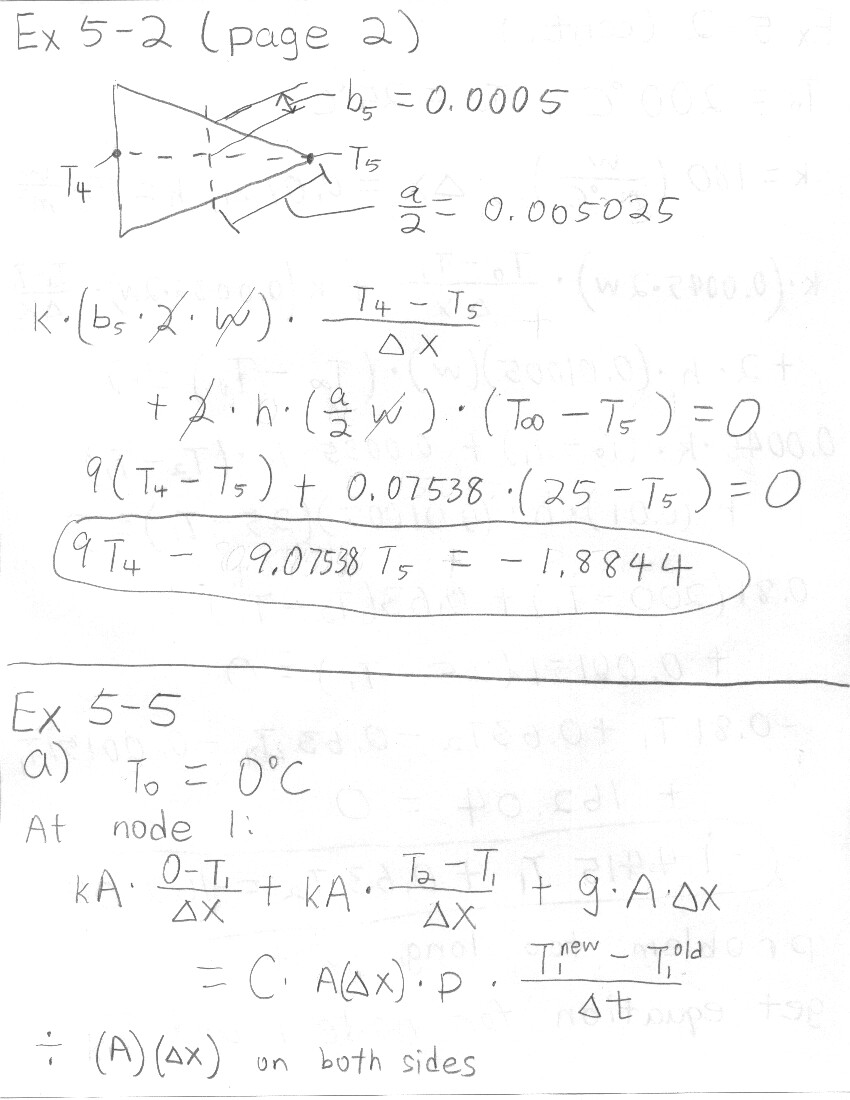 Ex 5-2 (page 2)
b₅ = 0.0005
T₄
T₅
a/2 = 0.005025
k·(b₅·2·w)· (T₄ - T₅)/Δx
+ 2·h·(a/2 w)·(T∞ - T₅) = 0
9(T₄ - T₅) + 0.07538·(25 - T₅) = 0
9T₄ - 9.07538 T₅ = -1.8844
Ex 5-5
a) T₀ = 0°C
At node 1:
kA· (0-T₁)/Δx + kA· (T₂-T₁)/Δx + g·A·Δx
= C· A(Δx)·ρ · (T₁ⁿᵉʷ - T₁ᵒˡᵈ)/Δt
÷ (A)(Δx) on both sides